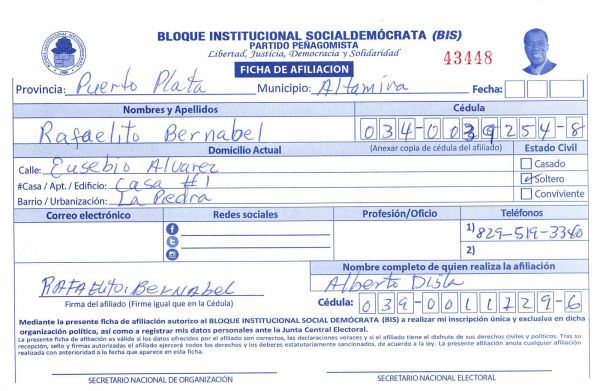 BLOQUE INSTITUCIONAL SOCIALDEMÓCRATA (BIS)
PARTIDO PEÑAGOMISTA
Libertad, Justicia, Democracia y Solidaridad
43448
FICHA DE AFILIACION
Provincia: Puerto Plata Municipio: Altamira Fecha:
Nombres y Apellidos Cédula
Rafaelito Bernabel 034-0039254-8
Domicilio Actual (Anexar copia de cédula del afiliado) Estado Civil
Calle: Eusebio Alvarez Casado
#Casa / Apt. / Edificio: Casa #1 Soltero
Barrio / Urbanización: La Piedra Conviviente
Correo electrónico Redes sociales Profesión/Oficio Teléfonos
1) 829-519-3340
2)
Nombre completo de quien realiza la afiliación
RAFAELITO BERNABEL Alberto Disla
Firma del afiliado (Firme igual que en la Cédula) Cédula: 039-0011729-6
Mediante la presente ficha de afiliación autorizo al BLOQUE INSTITUCIONAL SOCIAL DEMÓCRATA (BIS) a realizar mi inscripción única y exclusiva en dicha
organización política, así como a registrar mis datos personales ante la Junta Central Electoral.
La presente ficha de afiliación es válida si los datos ofrecidos por el afiliado son correctos, las declaraciones veraces y si el afiliado tiene el disfrute de sus derechos civiles y políticos. Tras su
recepción, sello y firmas autorizadas el afiliado ejercerá todos los derechos y los deberes estatutariamente sancionados, de acuerdo a la ley. La presente afiliación anula cualquier afiliación
realizada con anterioridad a la fecha que aparece en esta ficha.
SECRETARIO NACIONAL DE ORGANIZACIÓN SECRETARIO NACIONAL ELECTORAL